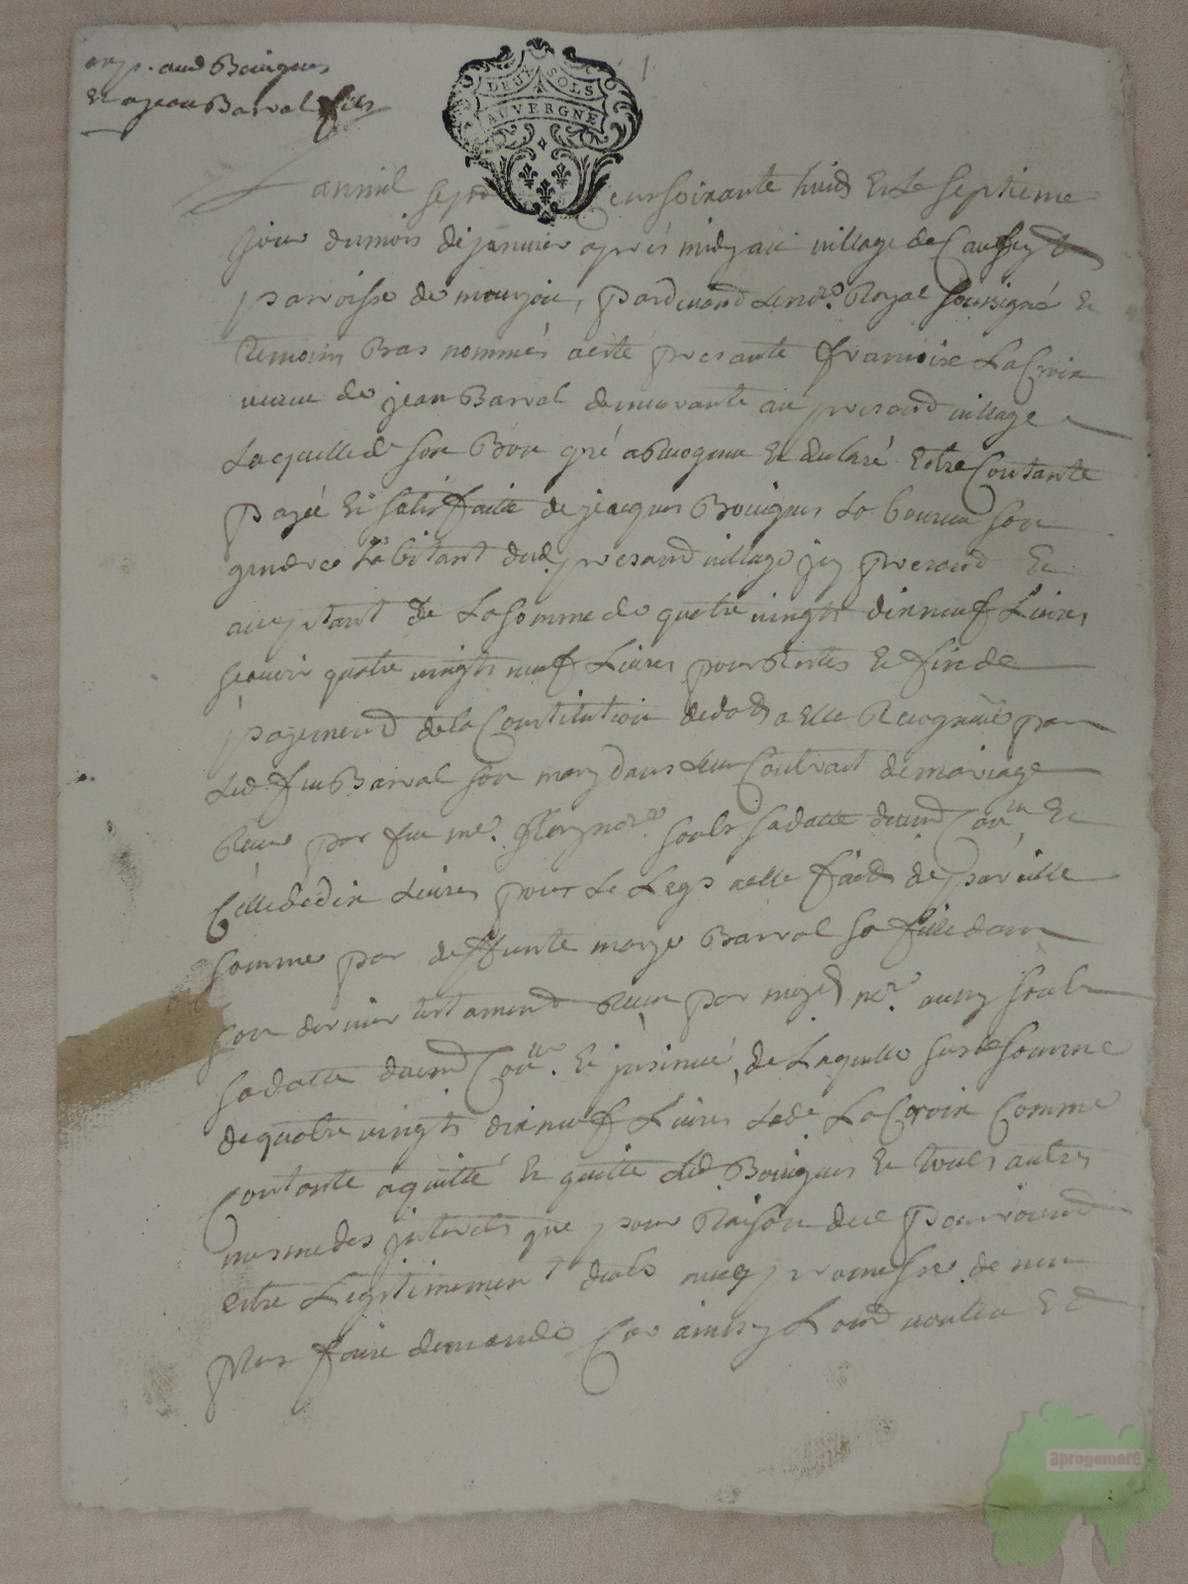 exp. aud Bouigues
Et a jean Barral fils
DEUX SOLS
AUVERGNE
Lan mil sept cens soixante huid Et Le septieme
jour du mois de janvier après midy au village de
parroisse de mourjou, pardevand Le no.re Royal soussigné Et
temoins Bas nommés a esté presante francoise LaCroix
veuve de jean Barral demeurante au presand village
Laquelle de son Bon gré a Recognu Et declaré Estre Contante
payée Et satisfaite de jeacques Bouigues Laboureur son
gendre habitant dud. presand village jcy presand Et
acceptant de La somme de quatre vingts dix neuf Livres
scavoir quatre vingts neuf Livres pour Restes Et fin de
payemend de la Constitution de dot a Elle Recognue par
Led feu Barral son mary dans Leur Contract de mariage
Receu par feu me. no.re soubs sa datte duemd Con.lé Et
Celle de dix Livres pour Le Legs a elle faid de pareille
somme par deffunte marye Barral sa fille dans
son dernier testamend Receu par no.re aussy soubs
sa datte duemd Con.lé Et jnsinué, de Laquelle susd.e somme
de quatre vingts dix neuf Livres Lad.e LaCroix Comme
Contante a quitté Et quitte Led Bouigues Et tous autres
mesme des jnterets que pour Raison dicelle pourroient
estre Legitimement deubs avec promesse de nen
plus faire demande Car ainsy Lond voulu Et
aprogemere